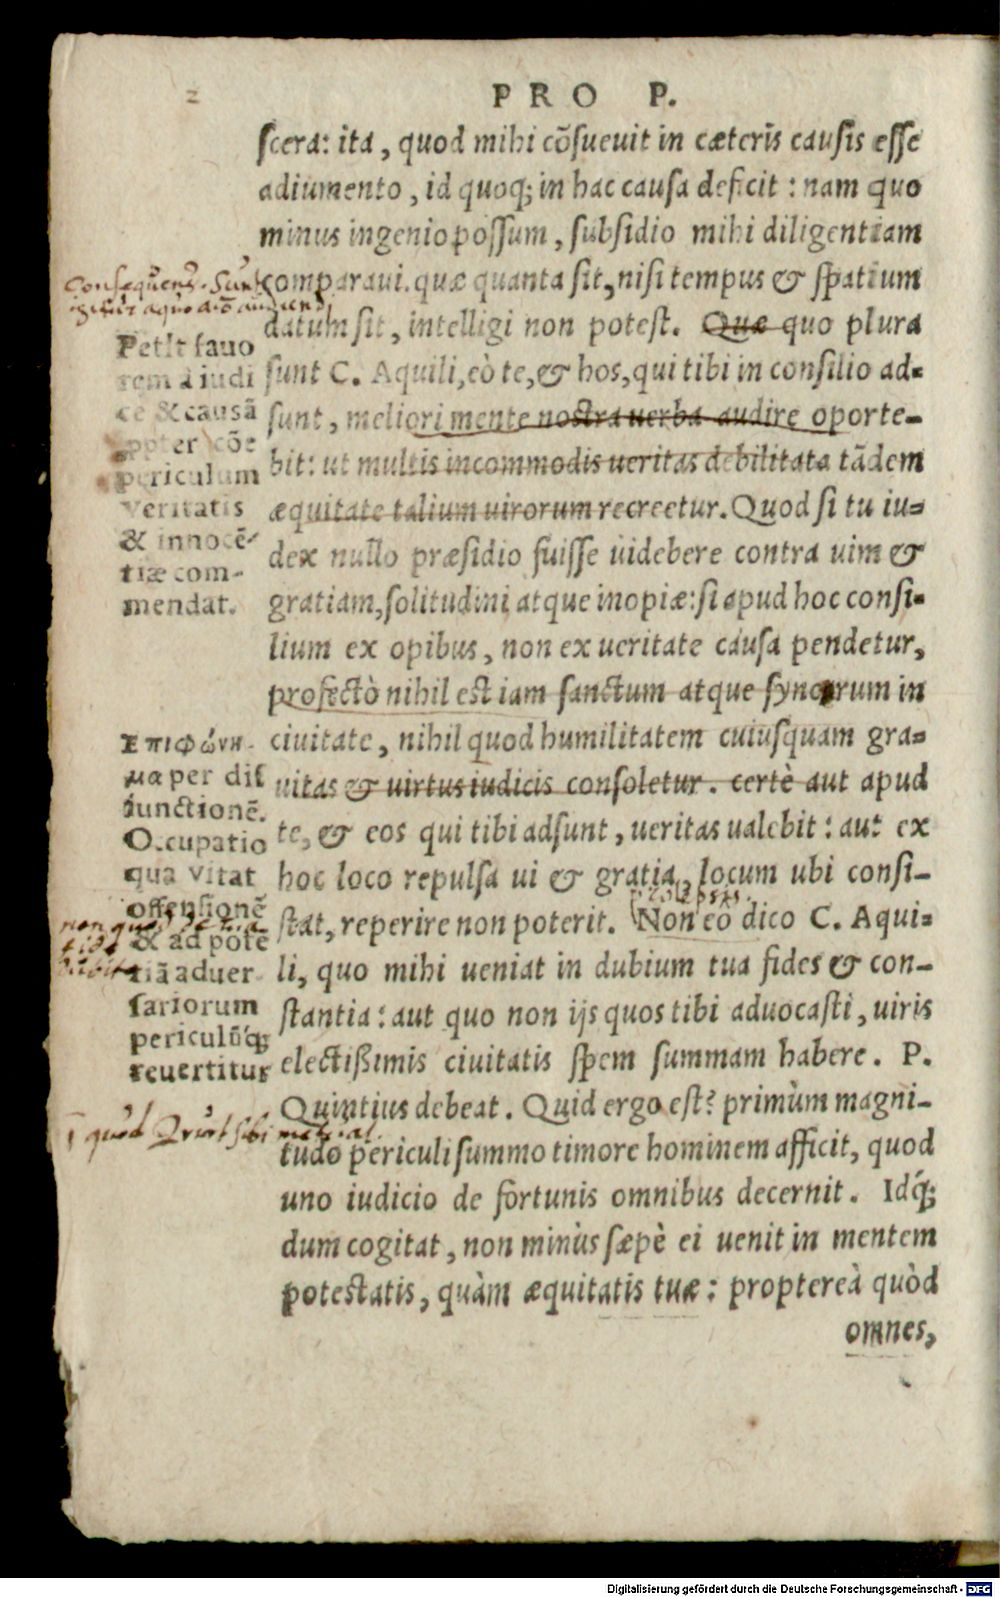 2
PRO P.
scera: ita, quod mihi cõsueuit in cæteris causis esse
adiumento, id quoq; in hac causa deficit: nam quo
minus ingenio possum, subsidio mihi diligentiam
comparaui. quæ quanta sit, nisi tempus & spatium
datum sit, intelligi non potest. Quæ quo plura
sunt C. Aquili, eò te, & hos, qui tibi in consilio ad-
sunt, meliori mente nostra uerba audire oporte-
bit: ut multis incommodis ueritas debilitata tãdem
æquitate talium uirorum recreetur. Quod si tu iu-
dex nullo præsidio fuisse uidebere contra uim &
gratiam, solitudini atque inopiæ: si apud hoc consi-
lium ex opibus, non ex ueritate causa pendetur,
profectò nihil est iam sanctum atque syncerum in
ciuitate, nihil quod humilitatem cuiusquam gra-
uitas & uirtus iudicis consoletur. certè aut apud
te, & eos qui tibi adsunt, ueritas ualebit: aut ex
hoc loco repulsa ui & gratia, locum ubi consi-
stat, reperire non poterit. Non eo dico C. Aqui-
li, quo mihi ueniat in dubium tua fides & con-
stantia: aut quo non ijs quos tibi aduocasti, uiris
electißimis ciuitatis spem summam habere. P.
Quintius debeat. Quid ergo est? primùm magni-
tudo periculi summo timore hominem afficit, quod
uno iudicio de fortunis omnibus decernit. Idq́;
dum cogitat, non minùs sæpè ei uenit in mentem
potestatis, quàm æquitatis tuæ: proptereà quòd
omnes,
Consequens. Sunt
igitur æquo aĩo audiendi
Petit fauo
rem à iudi
ce & causã
ꝓpter cõe
periculum
veritatis
& innocẽ-
tiæ com-
mendat.
Επιφώνη-
μα per dis
iunctionẽ.
Occupatio
qua vitat
offensionẽ
& ad potẽ
tiã aduer
sariorum
periculũq́;
reuertitur
non quod de tua
fide
dubitem
prolepsis.
quod Quint sibi metuat.
Digitalisierung gefördert durch die Deutsche Forschungsgemeinschaft - DFG